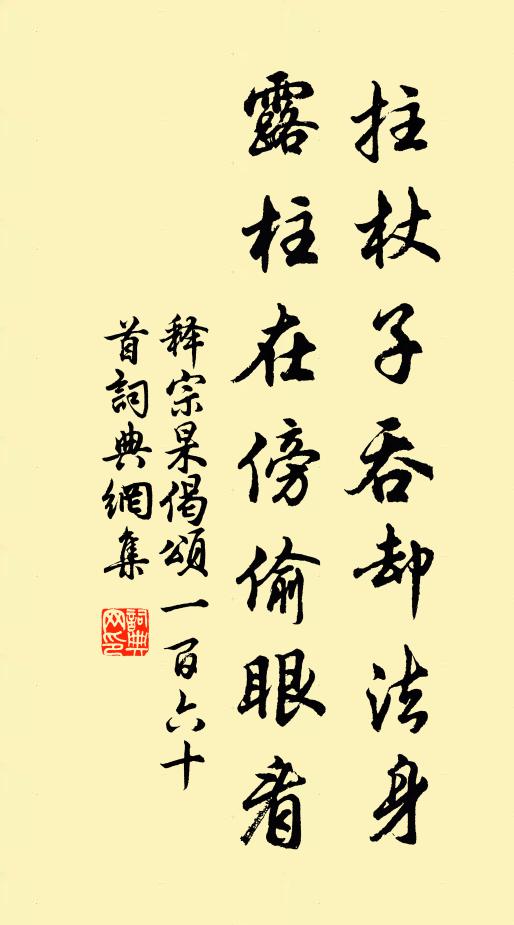 拄杖子吞却法身
露柱在傍偷眼看
释宗杲偈頌一百六十
首詞典網集
詞典網印